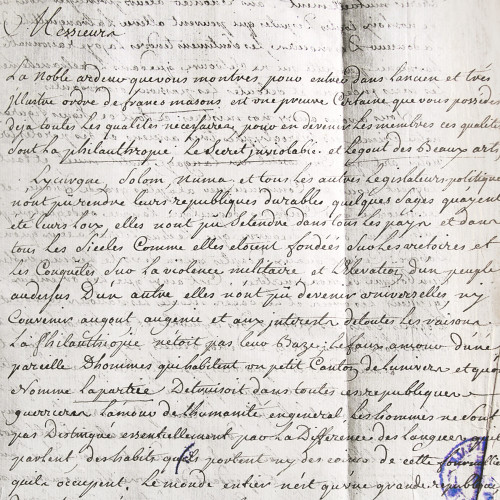 Messieurs
La Noble ardeur que vous montres, pour entrer dans lancien et tres
Jllustre ordre de francs masons, est vne preuve Certaine que vous possedes
deja toutes les qualités necesaires, pour en devenir les membres ces qualites
sont la philanthropie le Secret jnviolable et le gout des Beaux arts
Lycurgue Solom, Numa, et tous les autres Legislateurs politiques
nont pu rendre leurs republiques durables quelques Sages quayent
eté leurs loix, elles nont pu Setendre dans tous les pays et dans
tous les Siecles Comme elles etoient fondées Sur les victoires et
les Conquêtes Sur la violence militaire et Lelevation d'un peuple
audesus D'un autre elles nont pu devenir vniverselles ny
Convenir augout augenie et aux jnterests detoutes les nations
La philanthropie netoit pas leur Baze; le faux amour d'une
parcelle D'hommes qui habitent vn petit Canton de Lunivers et quon
Nomme la patrie Detruisoit dans toutes ces republiques
guerrieres Lamour de Lhumanite engeneral Les hommes ne sont
pas Distingue essentiellement par la Difference des langues quils
parlent des habits quils portent ny des coins de cette
quils occupent, Le monde entier nest qu'vne grande republique